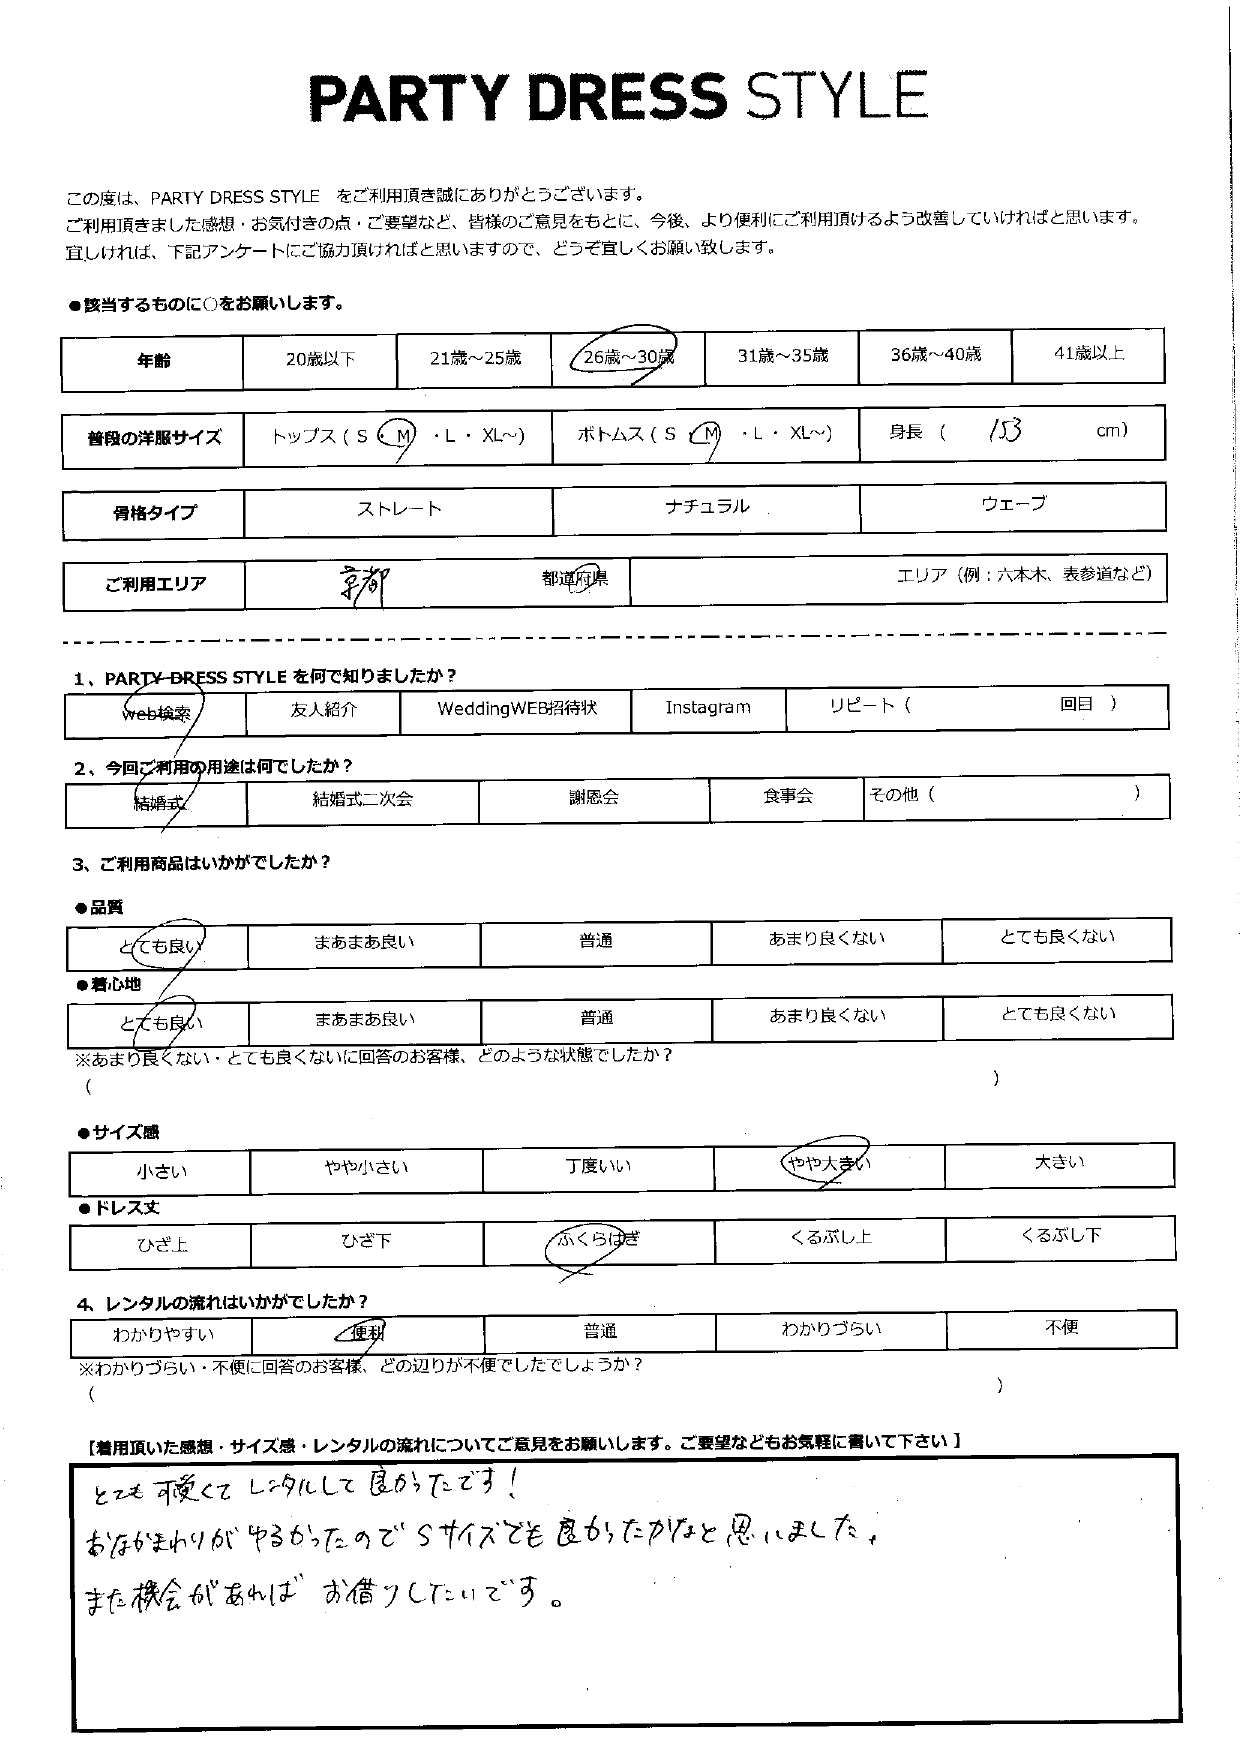 PARTY DRESS STYLE
この度は、PARTY DRESS STYLE をご利用頂き誠にありがとうございます。
ご利用頂きました感想・お気付きの点・ご要望など、皆様のご意見をもとに、今後、より便利にご利用頂けるよう改善していければと思います。
宜しければ、下記アンケートにご協力頂ければと思いますので、どうぞ宜しくお願い致します。
●該当するものに○をお願いします。
年齢 20歳以下 21歳～25歳 26歳～30歳 31歳～35歳 36歳～40歳 41歳以上
普段の洋服サイズ トップス ( S ・ M ・ L ・ XL～) ボトムス ( S ・ M ・ L ・ XL～) 身長 ( 153 cm)
骨格タイプ ストレート ナチュラル ウェーブ
ご利用エリア 京都 都道府県 エリア（例：六本木、表参道など）
1、PARTY DRESS STYLE を何で知りましたか？
web検索 友人紹介 WeddingWEB招待状 Instagram リピート ( 回目 )
2、今回ご利用の用途は何でしたか？
結婚式 結婚式二次会 謝恩会 食事会 その他 ( )
3、ご利用商品はいかがでしたか？
●品質
とても良い まあまあ良い 普通 あまり良くない とても良くない
●着心地
とても良い まあまあ良い 普通 あまり良くない とても良くない
※あまり良くない・とても良くないに回答のお客様、どのような状態でしたか？
( )
●サイズ感
小さい やや小さい 丁度いい やや大きい 大きい
●ドレス丈
ひざ上 ひざ下 ふくらはぎ くるぶし上 くるぶし下
4、レンタルの流れはいかがでしたか？
わかりやすい 便利 普通 わかりづらい 不便
※わかりづらい・不便に回答のお客様、どの辺りが不便でしたでしょうか？
( )
【着用頂いた感想・サイズ感・レンタルの流れについてご意見をお願いします。ご要望などもお気軽に書いて下さい】
とても可愛くてレンタルして良かったです！
おなかまわりがゆるかったのでSサイズでも良かったかなと思いました。
また機会があればお借りしたいです。